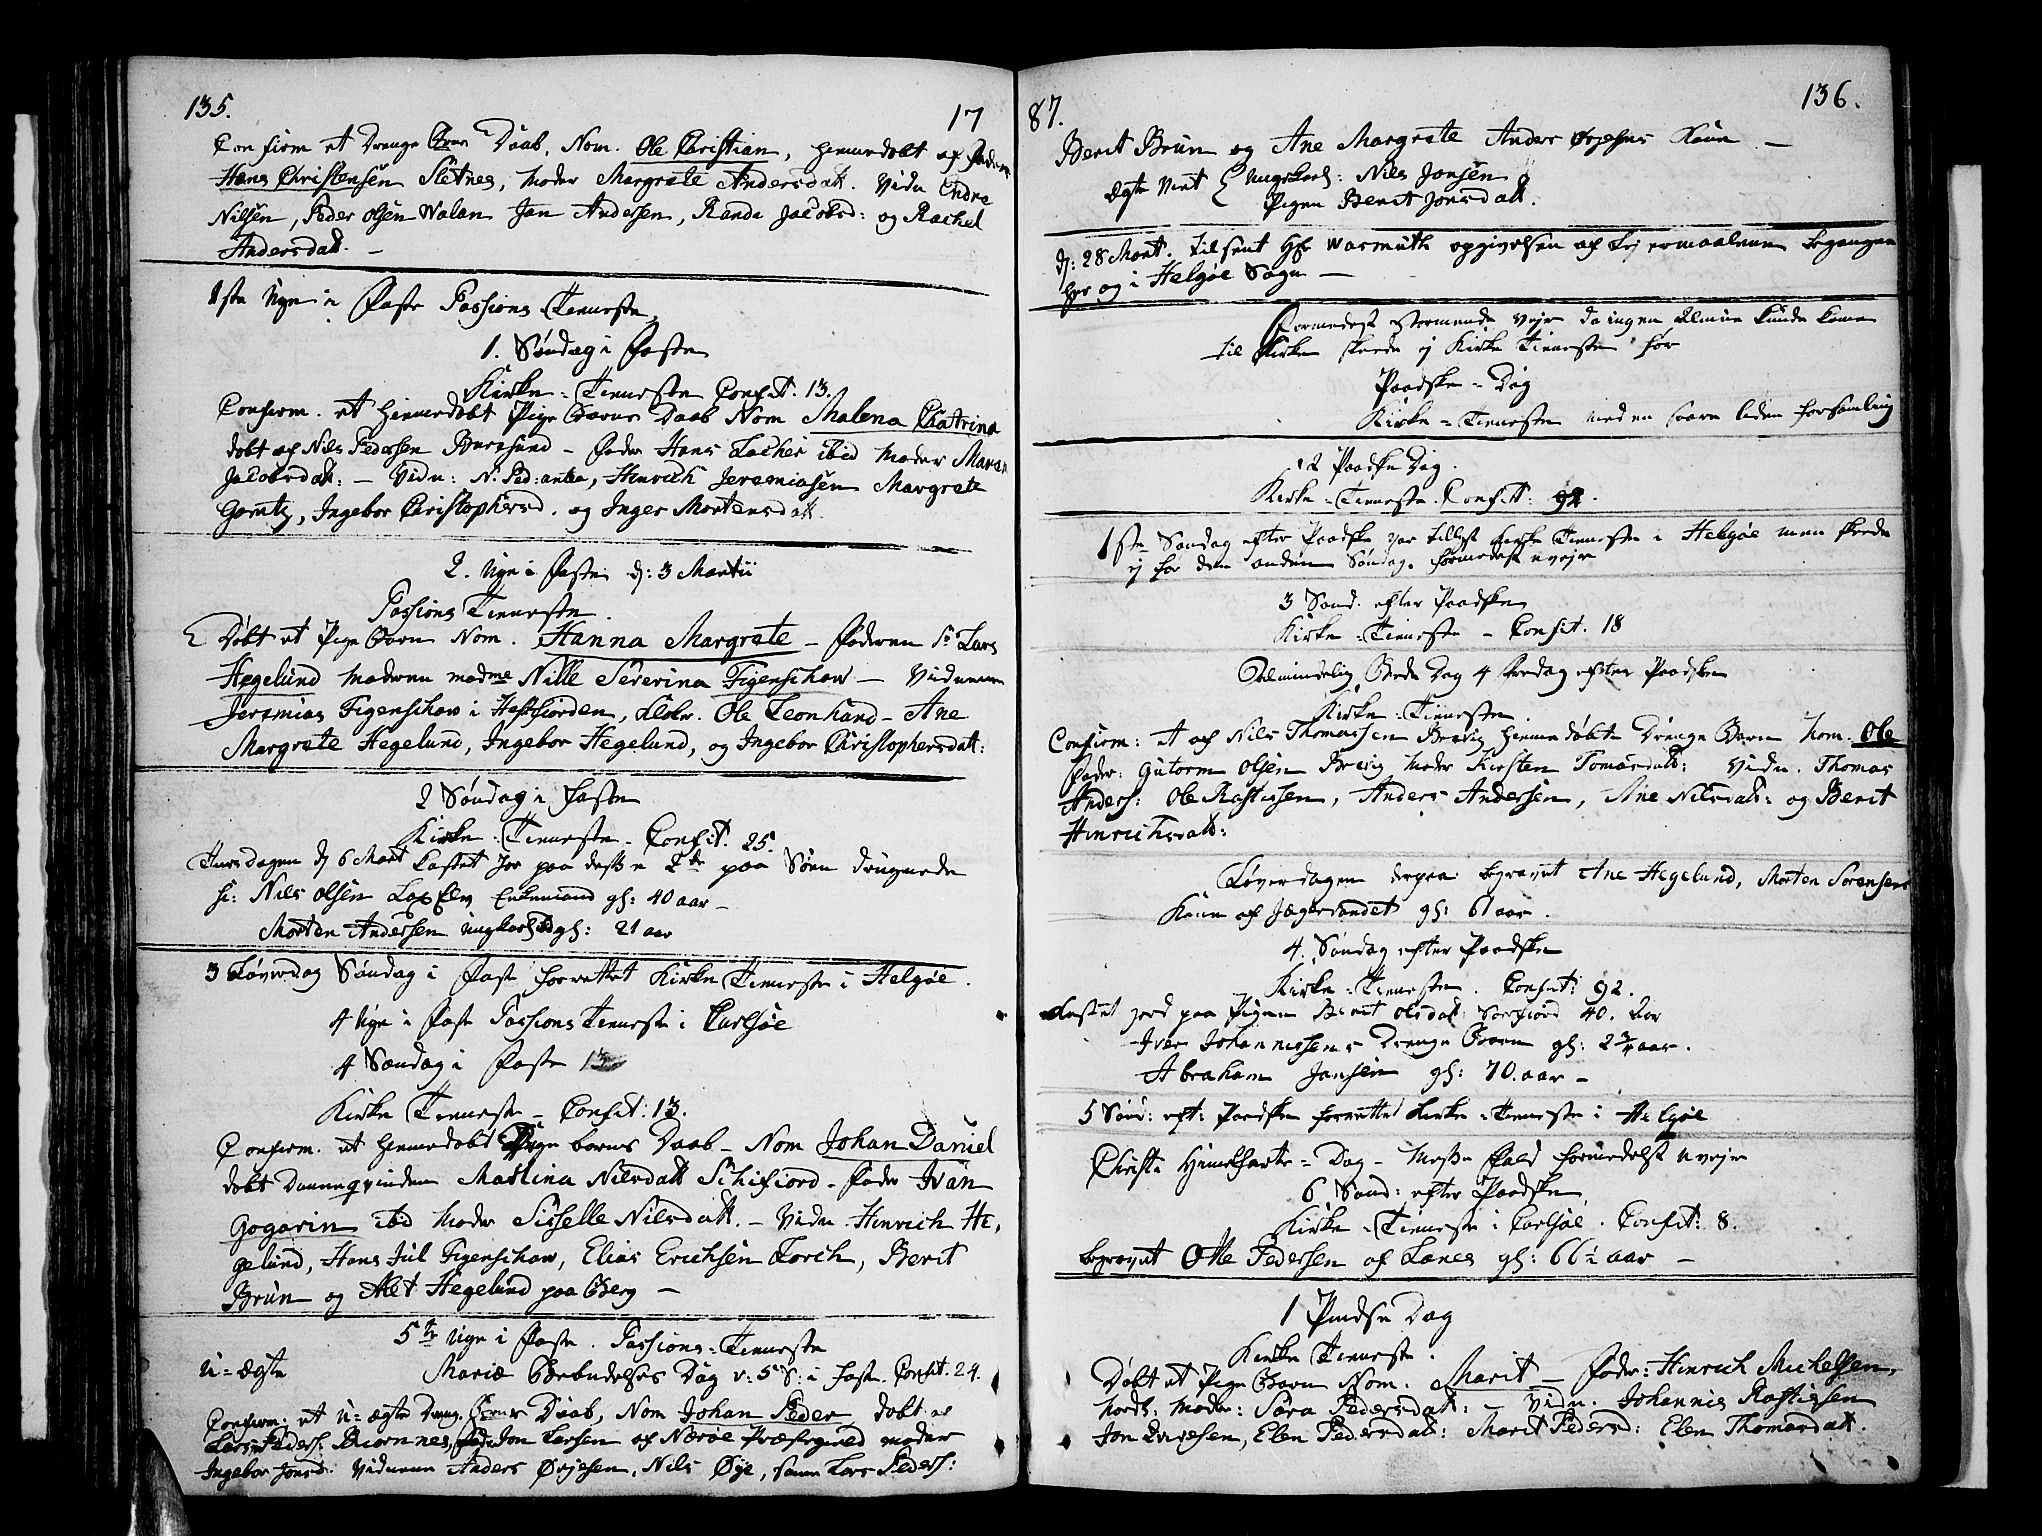 135. 17
Confirm et Drenge Barns Daab, Nom. Ole Christian, hiemmedobt af Faderen
Hans Christensen Sletnes, Moder Margrete Andersdatt. Vidn Endre
Nilsen, Peder Olsen Walan Jan Andersen, Rande Jacobsd: og Rachel
Andersdatt. —
1ste Uge i Faste Passions Tieneste
1. Søndag i Faste
Kirke-Tieneste Confit. 13.
Confirm. et hiemmedobt Pige Barns Daab Nom Malena Chatrina
dobt af Nils Pedersen Buresund – Fader Hans Lacher ibid Moder Maren
Jacobsdatt: — Vidn: N. Ped: antea, Hinrich Jeremiasen Margrete
Gamtz, Ingebor Christophersd. og Inger Mortensdatt
2. Uge i Faste d: 3 Martii
Passions Tieneste.
Døbt et Pige Barn Nom. Hanna Margrete – Faderen Sr Lars
Hegelund Moderen madme Nille Severina Figenschow — Vidnerne
Jeremias Figenschow i Hessfiorden, Klokr. Ole Leonhard – Ane
Margrete Hegelund, Ingebor Hegelund, og Ingebor Christophersdatt:
2 Søndag i Faste
Kirke-Tieneste – Confit. 25.
Thorsdagen d 6 Mart kastet Jor paa disse 2de paa Søen druknede
se: Nils Olsen Lax Elv Enkemand gl: 40 aar –
Morten Andersen ungkarl gl: 21 aar
3 Løverdag Søndag i Faste forrettet Kirke Tieneste i Helgøe.
4 Uge i Faste Passions Tieneste i Carlsøe
4 Søndag i Faste 13
Kirke Tieneste – Confit: 13.
Confirm. et hiemmedobt barns Daab – Nom Johan Daniel
dobt Danneqvinden Martina Nilsdatt Schifiord – Fader Ivan
Gogarin ibid Moder Sisselle Nilsdatt. – Vidn. Hinrich He,
gelund, Hans Jul Figenschow, Elias Erichsen Lorch, Berit
Brun og Alet Hegelund paa Berg —
5te Uge i Faste. Passions-Tieneste
U-ægte Mariæ Bebudelses Dag v: 5 S: i Faste. Confit. 24.
Confirm: et U-ægte Dreng. Barns Daab, Nom Johan Peder dobt af
Lars Peders: Biørnnes, Fader Jon Larsen af Norøe Præstegield moder
Ingebor Jonsd: Vidnerne Anders Ørjesen, Nils Øye, samt Lars Peders:
87. 136.
Berit Brun og Ane Margrete Anders Ørjesens Kone —
Ægte Viet { Ungkarl: Nils Jonsen
Pigen Berit Jonsdatt.
d: 28 Mart. tilsent Hr Wasmuth opgivelsen af Lejermaalene begangen
her og i Helgøe Sogn —
Formedelst stormende Vejr da ingen Almue kunde kome
til Kirke skeede ej Kirke Tieneste før
Paaske-Dag
Kirke-Tieneste med en saare liden forsamling
2 Paaske Dag.
Kirke-Tieneste. Confit: 92.
1ste Søndag efter Paaske var tillyst Kirke Tieneste i Helgøe men skeede
ej før den anden Søndag. formedelst uvejr
3 Sønd. efter Paaske
Kirke-Tieneste – Confit. 18
Almindelig Bede Dag 4 Fredag efter Paaske
Kirke-Tieneste.
Confirm: et af Nils Thomassen Brevig hiemmedøbte Drenge Barn Nom. Ole
Fader: Gutorm Olsen Brevig Moder Kirsten Tomasdatt: Vidn. Thomas
Anders: Ole Rastissen, Anders Andersen, Ane Nilsdatt: og Berit
Hinrichsdatt:
Løverdagen derpaa begravet Ane Hegelund, Morten Sørensens
Kone af Jægervandet gl: 61 aar.
4. Søndag efter Paaske
Kirke-Tieneste. Confit: 92.
kastet jord paa Pigen Berit Olsdatt: Sørfiord 40. Aar
Iver Johannessens Drenge Barn gl: 2 3/4 aar.
Abraham Jansen gl: 70. aar –
5 Sønd: eft: Paaske forrettet Kirke-Tieneste i Helgøe
Christi Himelfarts-Dag – Messe Fald formedelst uvejr
6 Sønd: efter Paaske
Kirke-Tieneste i Carlsøe. Confit: 8.
begravet Otte Pedersen af Lanes gl: 66½ aar —
1 Pindse Dag
Kirke Tieneste.
Døbt et Pige Barn Nom. Marit — Fader: Hinrich Michelsen,
Nords: Moder: Sara Pedersdatt: Vidn. Johannis Rastissen
Jon Iversen, Elen Pedersdatt: Marit Pedersd: Elen Thomasdatt.